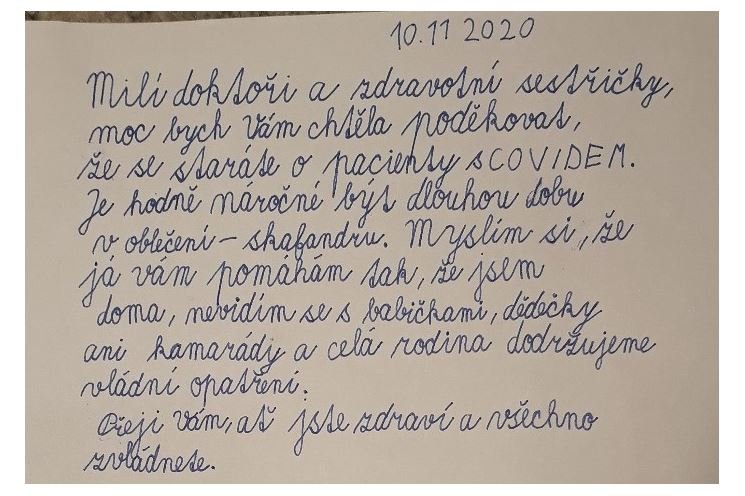 10.11 2020
Milí doktoři a zdravotní sestřičky,
moc bych Vám chtěla poděkovat,
že se staráte o pacienty s COVIDEM.
Je hodně náročné být dlouhou dobu
v oblečení - skafandru. Myslím si, že
já vám pomáhám tak, že jsem
doma, nevidím se s babičkami, dědečky
ani kamarády a celá rodina dodržujeme
vládní opatření.
Přeji Vám, ať jste zdraví a všechno
zvládnete.